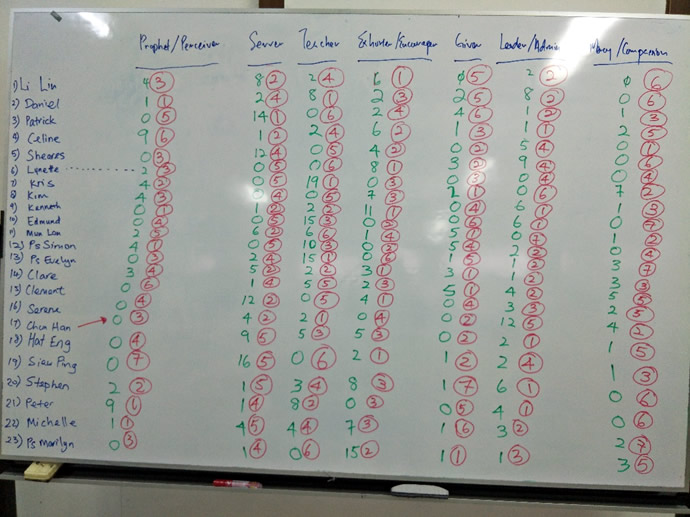 Prophet/Perceiver Server Teacher Exhorter/Encourager Giver Leader/Admin Mercy/Compassion
1) Li Lin 4 3 8 2 2 4 6 1 0 5 2 2 0 6
2) Daniel 1 1 2 4 8 1 2 3 2 5 8 2 0 6
3) Patrick 0 5 14 1 0 6 2 4 4 6 1 2 1 3
4) Celine 9 6 1 2 2 4 6 2 1 3 1 1 2 5
5) Sheares 0 3 12 4 0 5 4 2 0 2 5 4 0 6
6) Lynette 2 3 0 5 0 6 8 1 3 2 9 4 0 4
7) Kris 4 2 0 5 19 1 0 3 0 5 0 4
8) Kim 4 3 0 4 0 5 7 3 2 1 0 6 7 2
9) Kenneth 0 1 1 2 2 2 11 1 0 4 6 1 1 3
10) Edmund 0 4 0 2 15 3 0 5 0 6 6 1 0 7
11) Mun Lan 2 5 6 2 6 6 1 4 5 5 0 7 1 2
12) Ps Simon 4 1 0 5 10 3 0 2 5 4 2 2 0 4
13) Ps Evelyn 0 3 2 4 15 1 0 6 1 4 1 2 3 7
14) Clare 3 4 5 2 2 2 3 1 3 1 1 2 3 3
15) Clement 0 6 1 4 5 5 2 3 5 1 4 2 5 5
16) Serene 0 4 12 2 0 5 4 1 0 4 3 3 2 5
17) Chun Han 0 3 4 2 2 1 0 4 0 2 12 5 4 2
18) Hat Eng 0 4 9 5 5 3 5 3 2 1 1 5
19) Siew Ping 0 7 16 5 0 6 2 1 1 2 2 4 1 3
20) Stephen 2 2 1 5 3 4 8 3 1 7 6 1 0 6
21) Peter 9 1 1 4 8 2 0 3 0 5 4 1 0 6
22) Michelle 1 1 4 5 4 4 7 3 1 6 3 2 2 7
23) Ps Marilyn 0 3 1 4 0 6 15 2 1 1 1 3 3 5